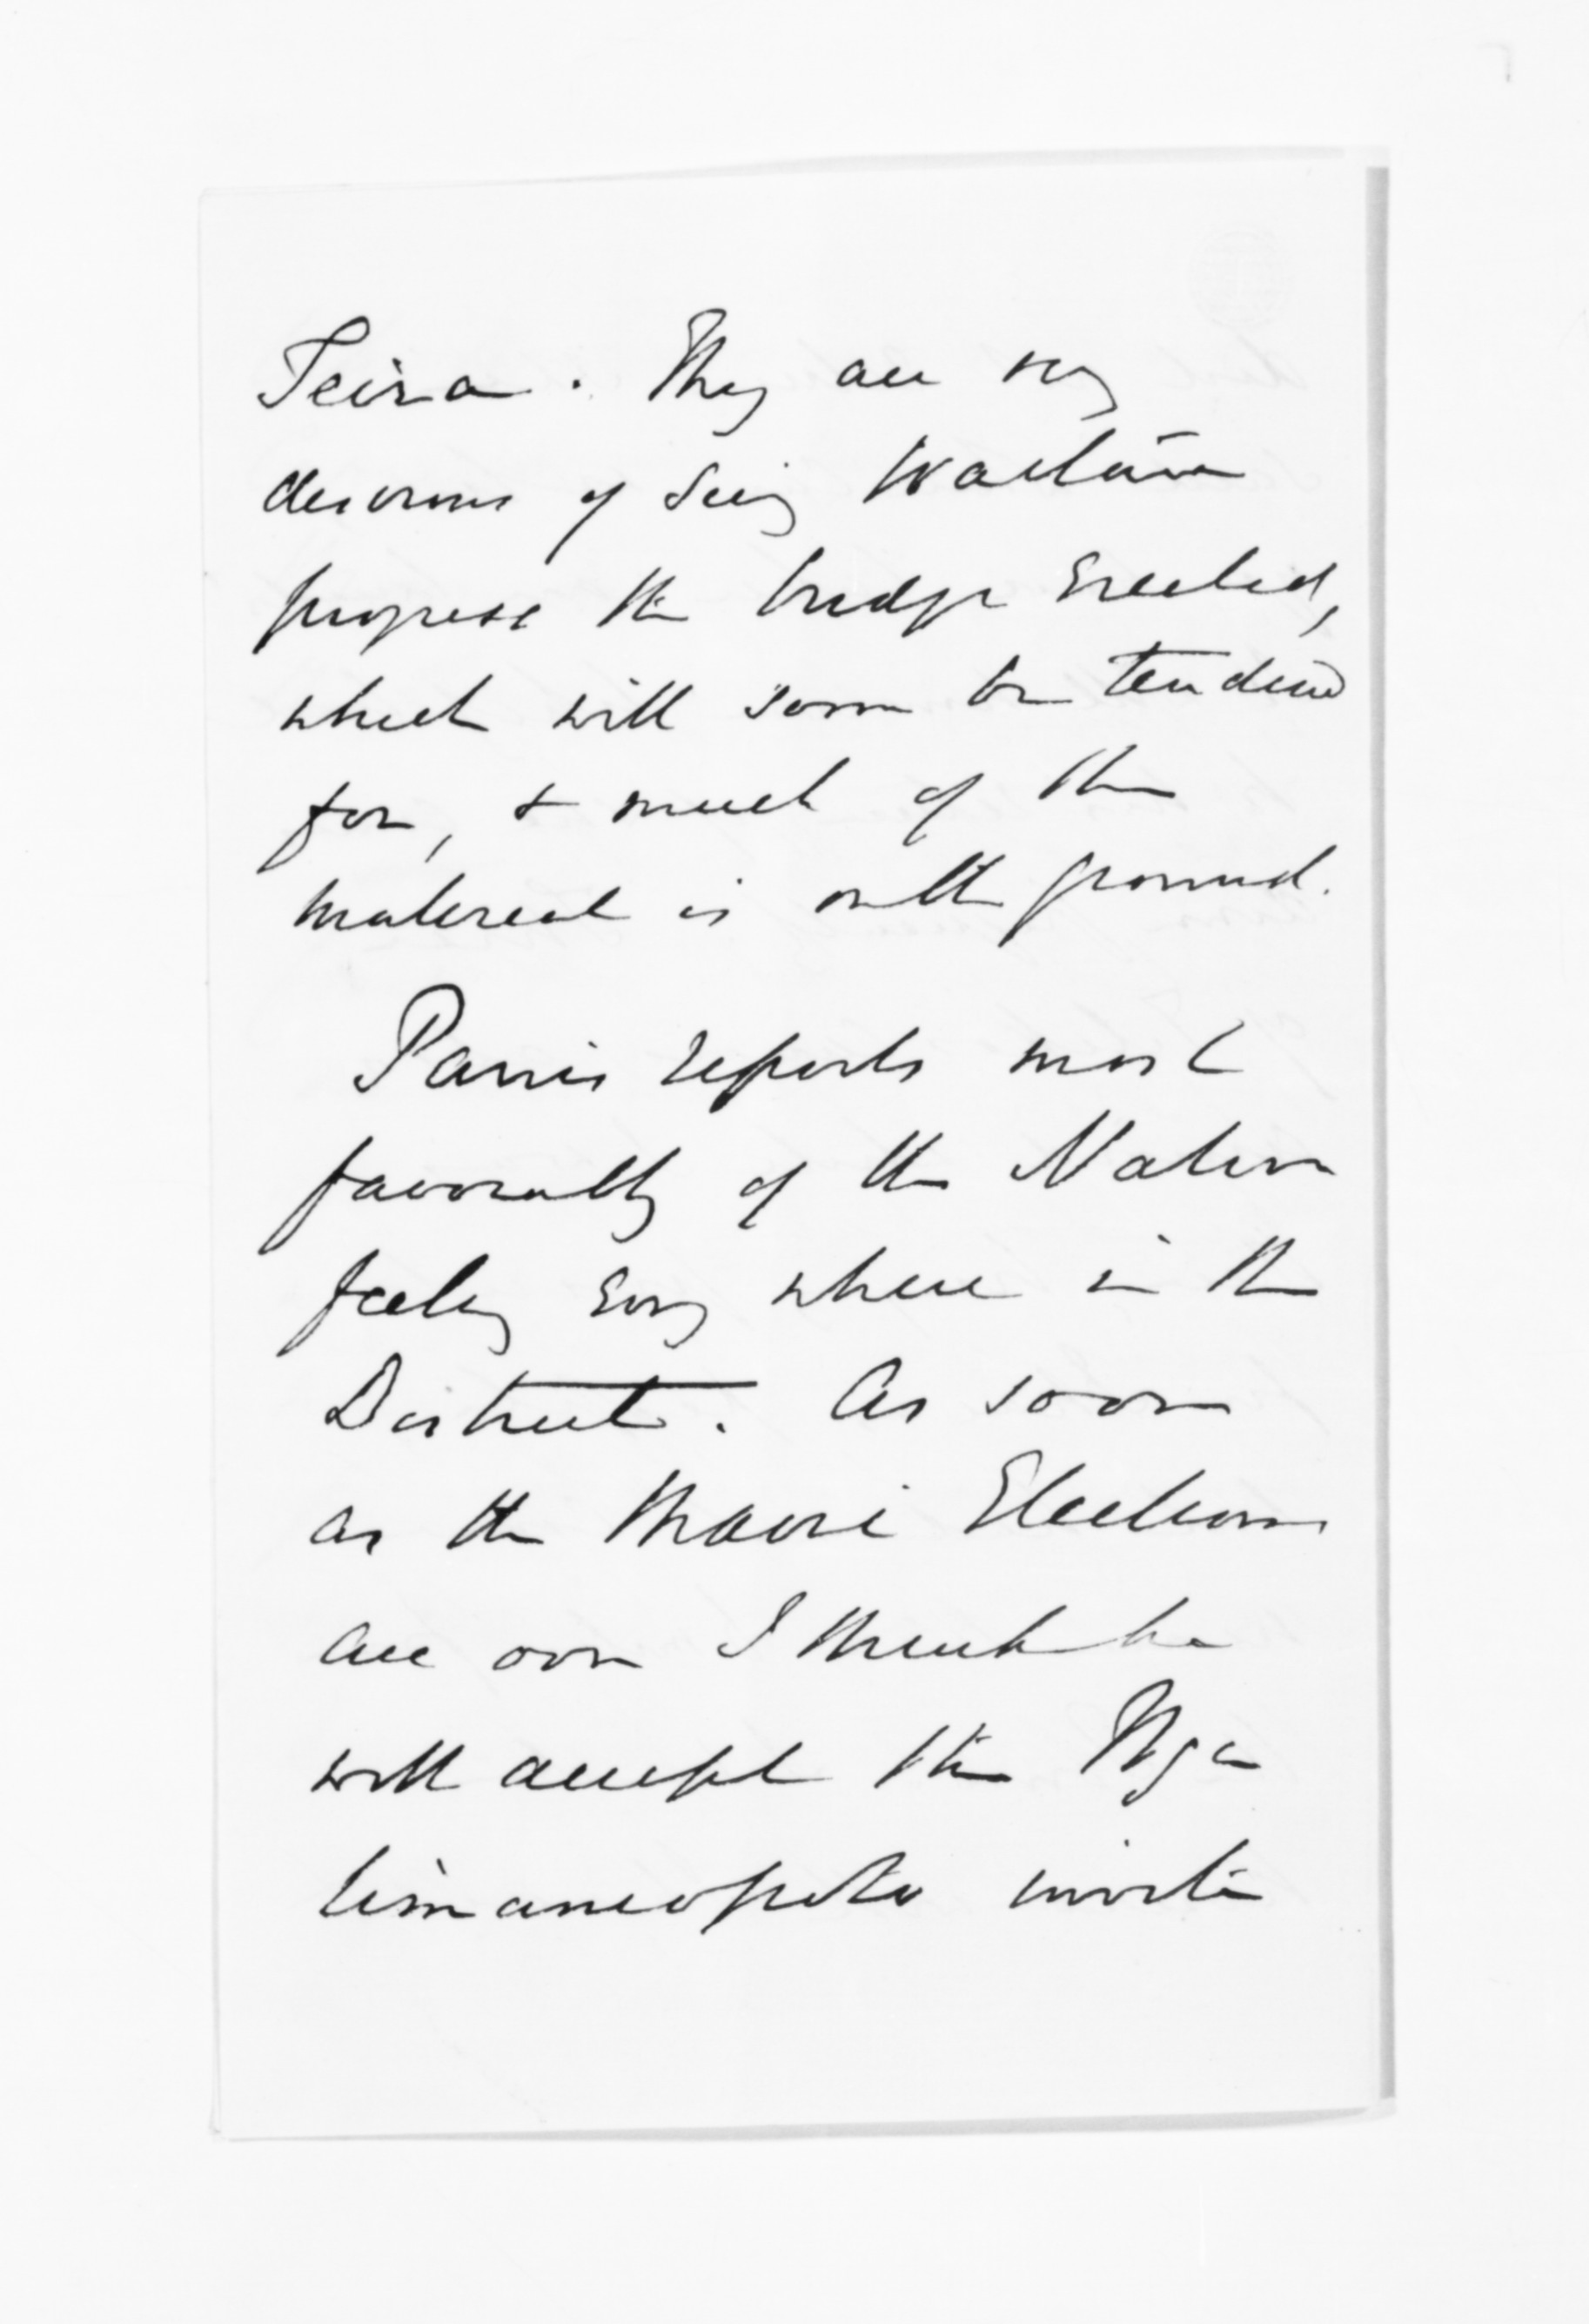 Teira. They are very
desirous of seeing Waitara
progress the bridge erected,
which will soon be tendered
for, & much of the
material is on the ground.
Parris reports most
favorably of the Native
feeling every where in the
District. As soon
as the Maori Elections
are over I think he
will accept the Nga
timaniapoto invita